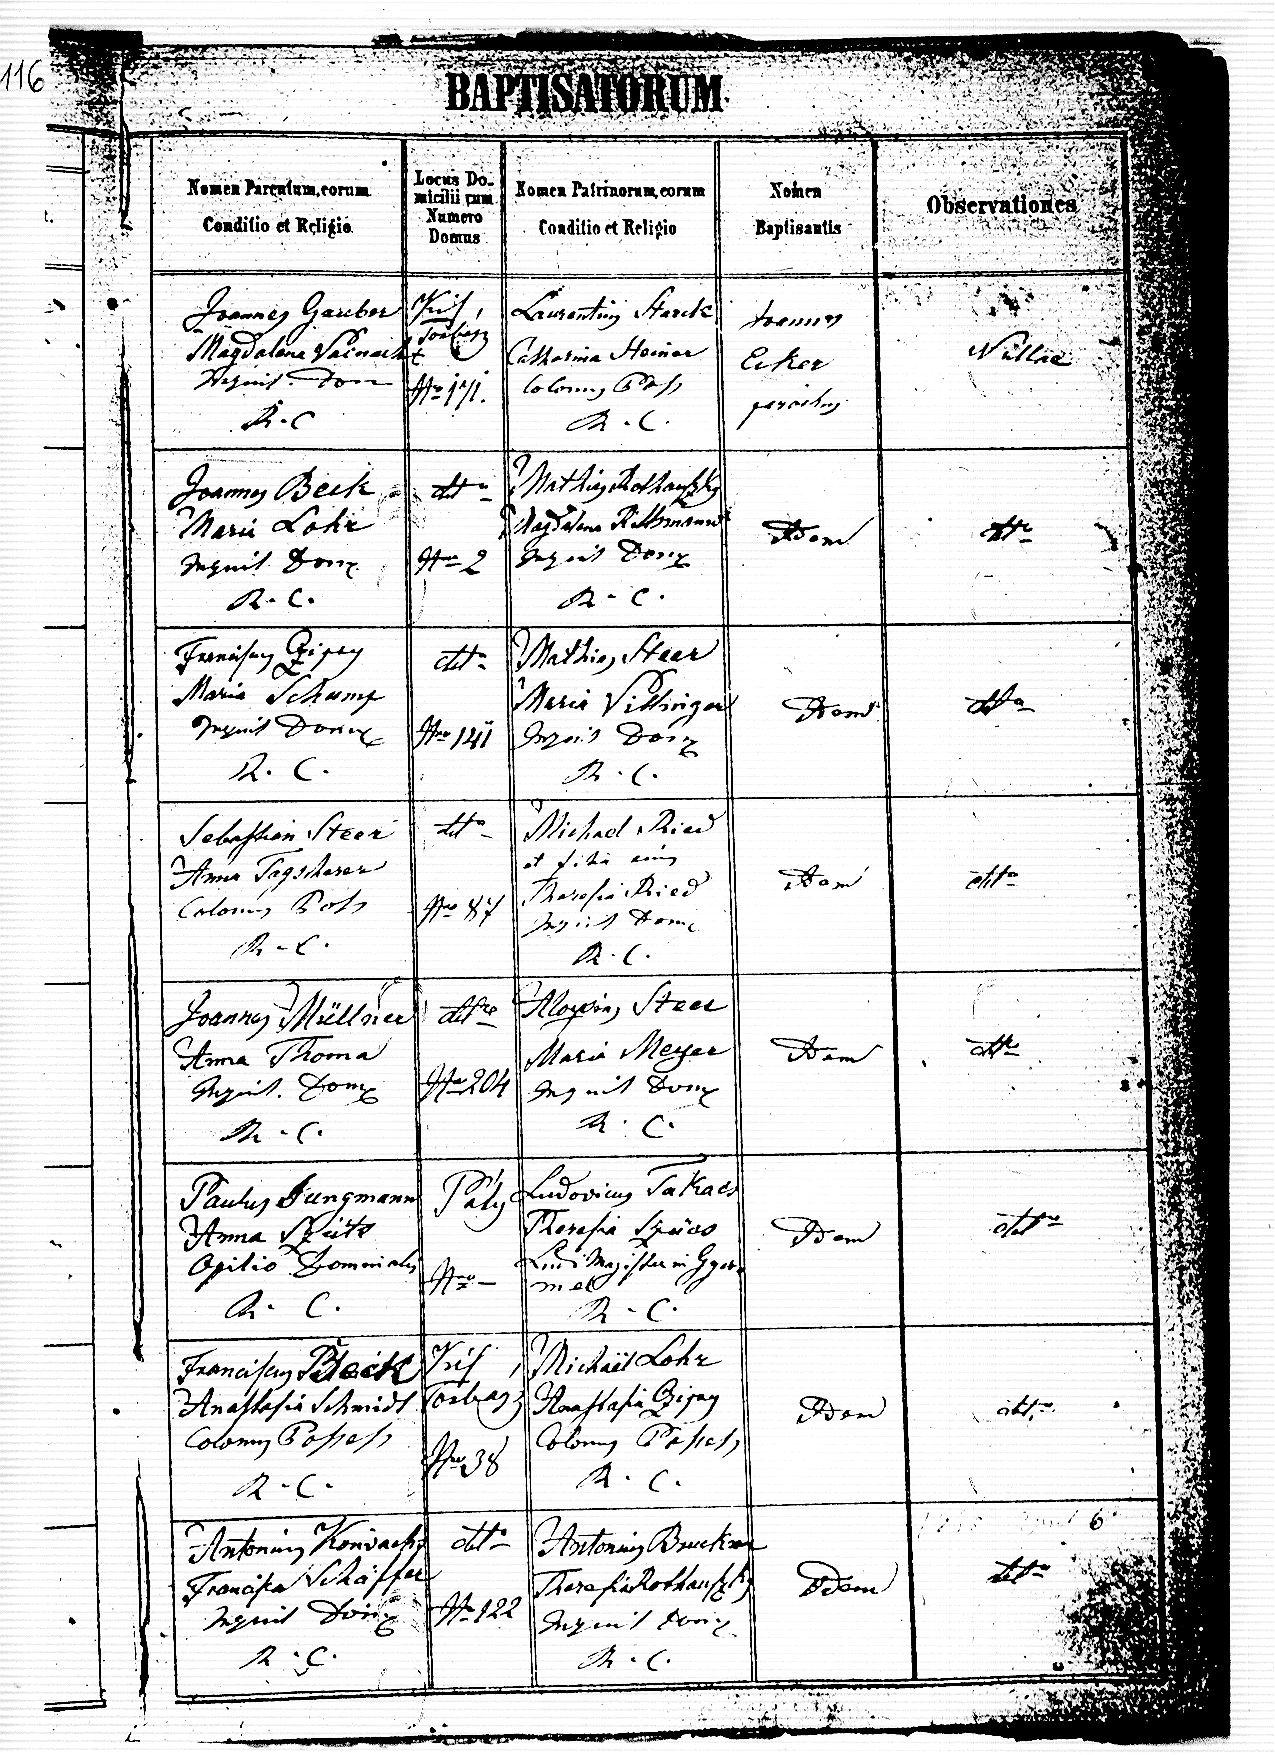 116
BAPTISATORUM
Nomen Parentum, eorum
Conditio et Religio
Locus Do-
micilii cum
Numero
Domus
Nomen Patrinorum, eorum
Conditio et Religio
Nomen
Baptisantis
Observationes
Joannes Gareber
Magdalena
Inquil. Dom
R. C
Kis,
Torbágy
Nro 171.
Laurentius Starck
Catharina Steiner
Colonus Poss
R. C.
Joannes
Ecker
parochus
Nullae
Joannes Beck
Maria Lohr
Inquil. Dom
R. C.
dtto
Nro 2
Mathias Rothauszky
Magdalena
Inquil Dom
R. C.
Idem
dtto
Franciscus Czigay
Maria Schump
Inquil Dom
R. C.
dtto
Nro 141
Mathias Steer
Maria Villinger
Inquil Dom
R. C.
Idem
dtto
Sebastian Steer
Anna Tagscherer
Colonus Poss
R. C
dtto
Nro 87
Michael Ried
et filia eius
Theresia Ried
Inquil Dom
R. C.
Idem
dtto
Joannes Müllner
Anna Thoma
Inquil. Dom
R. C.
dtto
Nro 204
Aloysius Steer
Maria Meyer
Inquil Dom
R. C.
Idem
dtto
Paulus Jungmann
Anna
Opilio Dominalis
R. C.
Páty
Nro –
Ludovicus Takacs
Theresia Szücs
Ludi Magister in Gyer-
mel
R. C.
Idem
dtto
Franciscus Bleick
Anastasia Schmidt
Colonus Possess
R. C.
Kis,
Torbágy
Nro 38
Michael Lohr
Anastasia Czigay
Colonus Possess
R. C.
Idem
dtto
Antonius
Francisca Schäffer
Inquil Dom
R. C.
dtto
Nro 122
Antonius Bruckner
Theresia Rothauszky
Inquil Dom
R. C.
Idem
6
dtto